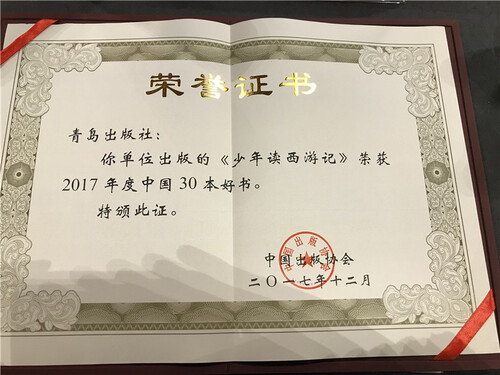 荣誉证书
青岛出版社：
你单位出版的《少年读西游记》荣获
2017年度中国30本好书。
特颁此证。
中国出版协会
二〇一七年十二月
中国出版协会